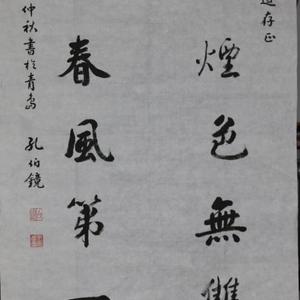 道存正
煙色無雙
春風第一
仲秋書於青島 孔伯鏡